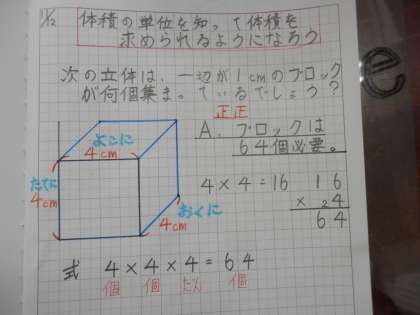 11/2
体積の単位を知って体積を
求められるようになろう
次の立体は、一辺が1cmのブロック
が何個集まっているでしょう?
正正
A. ブロックは
64個必要。
よこに
4cm
たてに
4cm
おくに
4cm
4×4=16
16
×24
64
式 4×4×4=64
個 個 だん 個